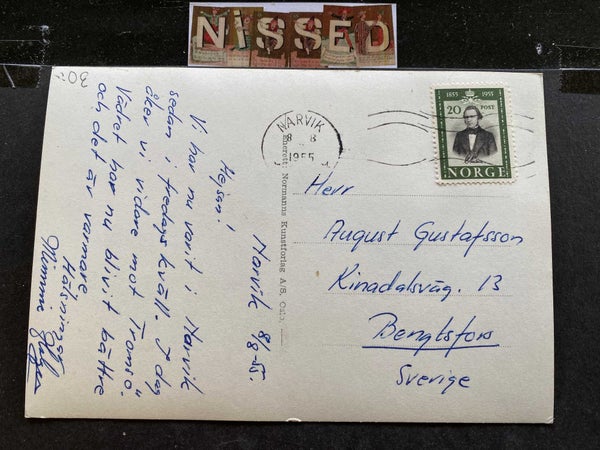 NiSSED
30:-
Narvik 8/8-55.
Hejsan!
Vi har nu varit i Narvik
sedan i fredags kväll. I dag
åker vi vidare mot Tromsö.
Vädret har nu blivit bättre
och det är varmare.
Hälsningar
Mimmi
Enerett: Normanns Kunstforlag A/S, Oslo.
NARVIK
8 8
1955
1855 1955
20 POST
NORGE
Herr
August Gustafsson
Kinadalsväg. 13
Bengtsfors
Sverige